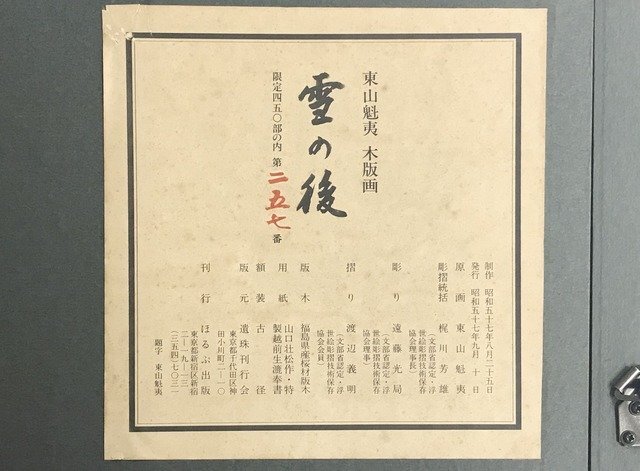 東山魁夷 木版画
雪の後
限定四五〇部の内 第二五七番
制作 昭和五十七年八月二十五日
発行 昭和五十七年九月 十 日
原画 東山魁夷
彫摺統括 梶川芳雄
(文部省認定・浮
世絵彫摺技術保存
協会理事長)
彫り 遠藤光局
(文部省認定・浮
世絵彫摺技術保存
協会理事)
摺り 渡辺義明
(文部省認定・浮
世絵彫摺技術保存
協会会員)
版木 福島県産桜材版木
用紙 山口荘松作・特
製越前生漉奉書
額装 古径
版元 遺珠刊行会
東京都千代田区神
田小川町二―一〇
刊行 ほるぷ出版
東京都新宿区新宿
二―一九―一三
(三五四)七〇三一
題字 東山魁夷